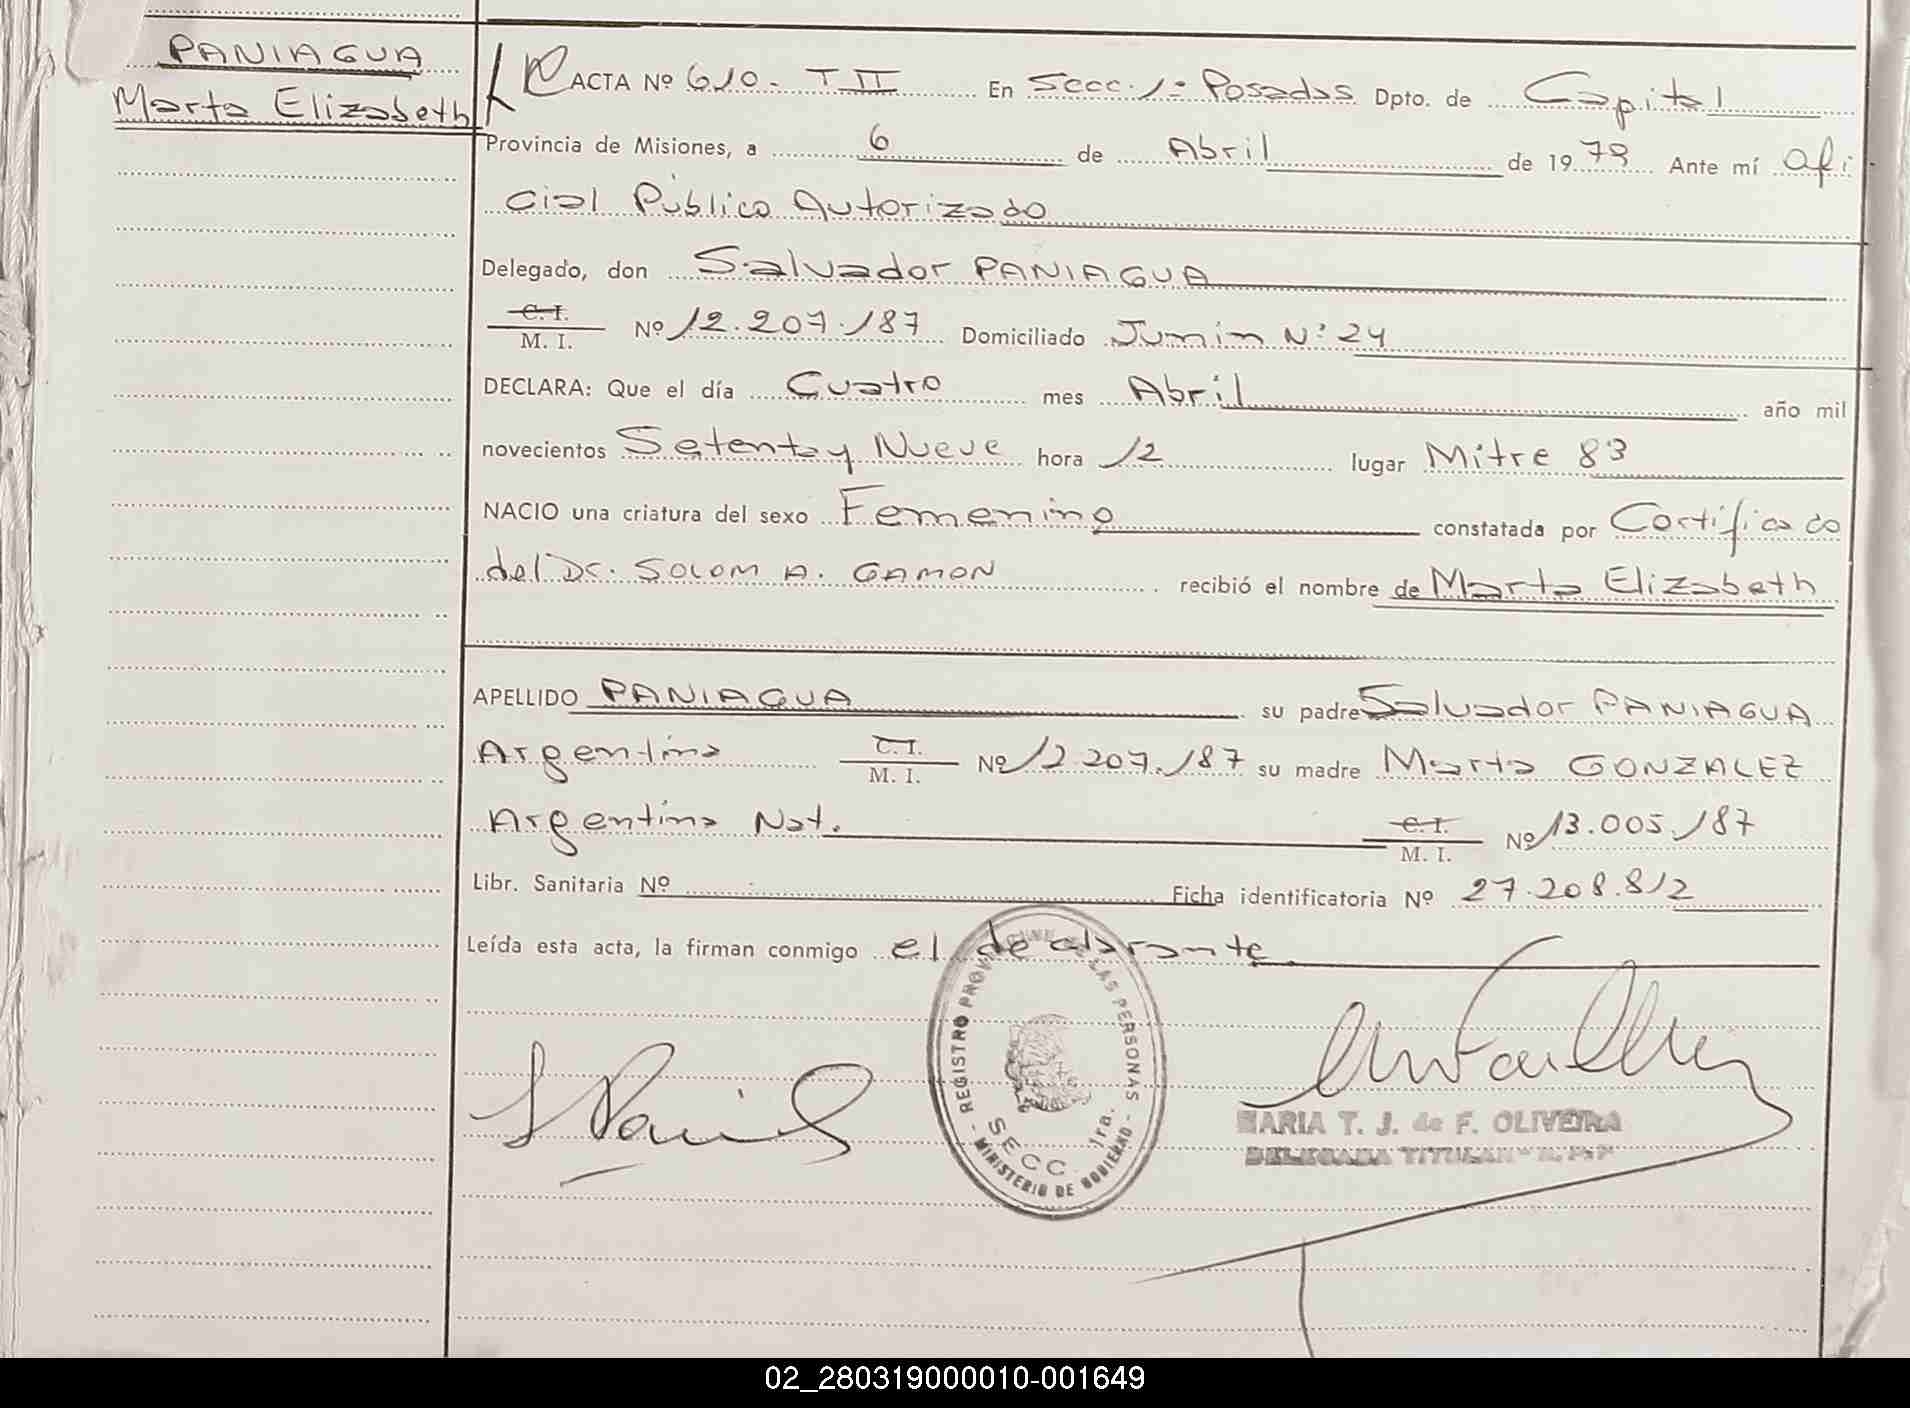 PANIAGUA
Marta Elizabeth
ACTA Nº 610 - T II En Secc. 1ª Posadas Dpto. de Capital
Provincia de Misiones, a 6 de Abril de 1979 Ante mí Ofi
cial Público Autorizado
Delegado, don Salvador PANIAGUA
C. I.
M. I. Nº 12.207.187 Domiciliado Junin Nº 24
DECLARA: Que el día Cuatro mes Abril año mil
novecientos Setenta y Nueve hora 12 lugar Mitre 83
NACIO una criatura del sexo Femenino constatada por Certificado
del Dr. SOLOM A. GAMON recibió el nombre de Marta Elizabeth
APELLIDO PANIAGUA su padre Salvador PANIAGUA
Argentino C. I. M. I. Nº 12.207.187 su madre Marta GONZALEZ
Argentina Nat. C. I. M. I. Nº 13.005.187
Libr. Sanitaria Nº Ficha identificatoria Nº 27.208.812
Leída esta acta, la firman conmigo el declarante.
REGISTRO PROVINCIAL DE LAS PERSONAS
SECC. 1ra.
MINISTERIO DE GOBIERNO
MARIA T. J. de F. OLIVEIRA
DELEGADA TITULAR
02_280319000010-001649